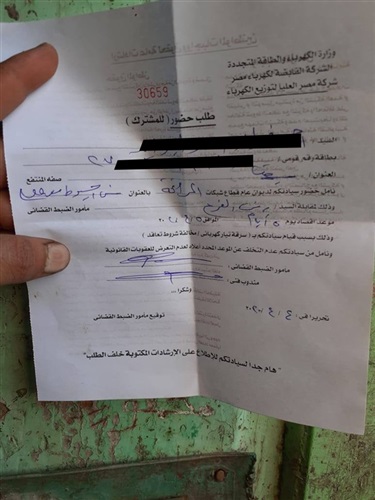 وزارة الكهرباء والطاقة المتجددة
الشركة القابضة لكهرباء مصر
شركة مصر العليا لتوزيع الكهرباء
30659
طلب حضور ( للمشترك )
السيد /
بطاقة رقم قومى / ٢٧
العنوان / صفه المنتفع
نأمل حضور سيادتكم لديوان عام قطاع شبكات المراغة بالعنوان
وذلك لمقابلة السيد / مأمور الضبط القضائى
موعد أقصاه يوم ٥ أيام الموافق ٥ / ٤ / ٢٠٢
وذلك بسبب قيام سيادتكم بـ ( سرقة تيار كهربائى / مخالفة شروط تعاقد )
ونأمل من سيادتكم عدم التخلف عن الموعد المحدد أعلاه لعدم التعرض للعقوبات القانونية
مأمور الضبط القضائى :
مندوب فنى :
وشكرا ...
تحريرا فى : ٤ / ٤ / ٢٠٢
توقيع مأمور الضبط القضائى
" هام جداً لسيادتكم للاطلاع على الإرشادات المكتوبة خلف الطلب "